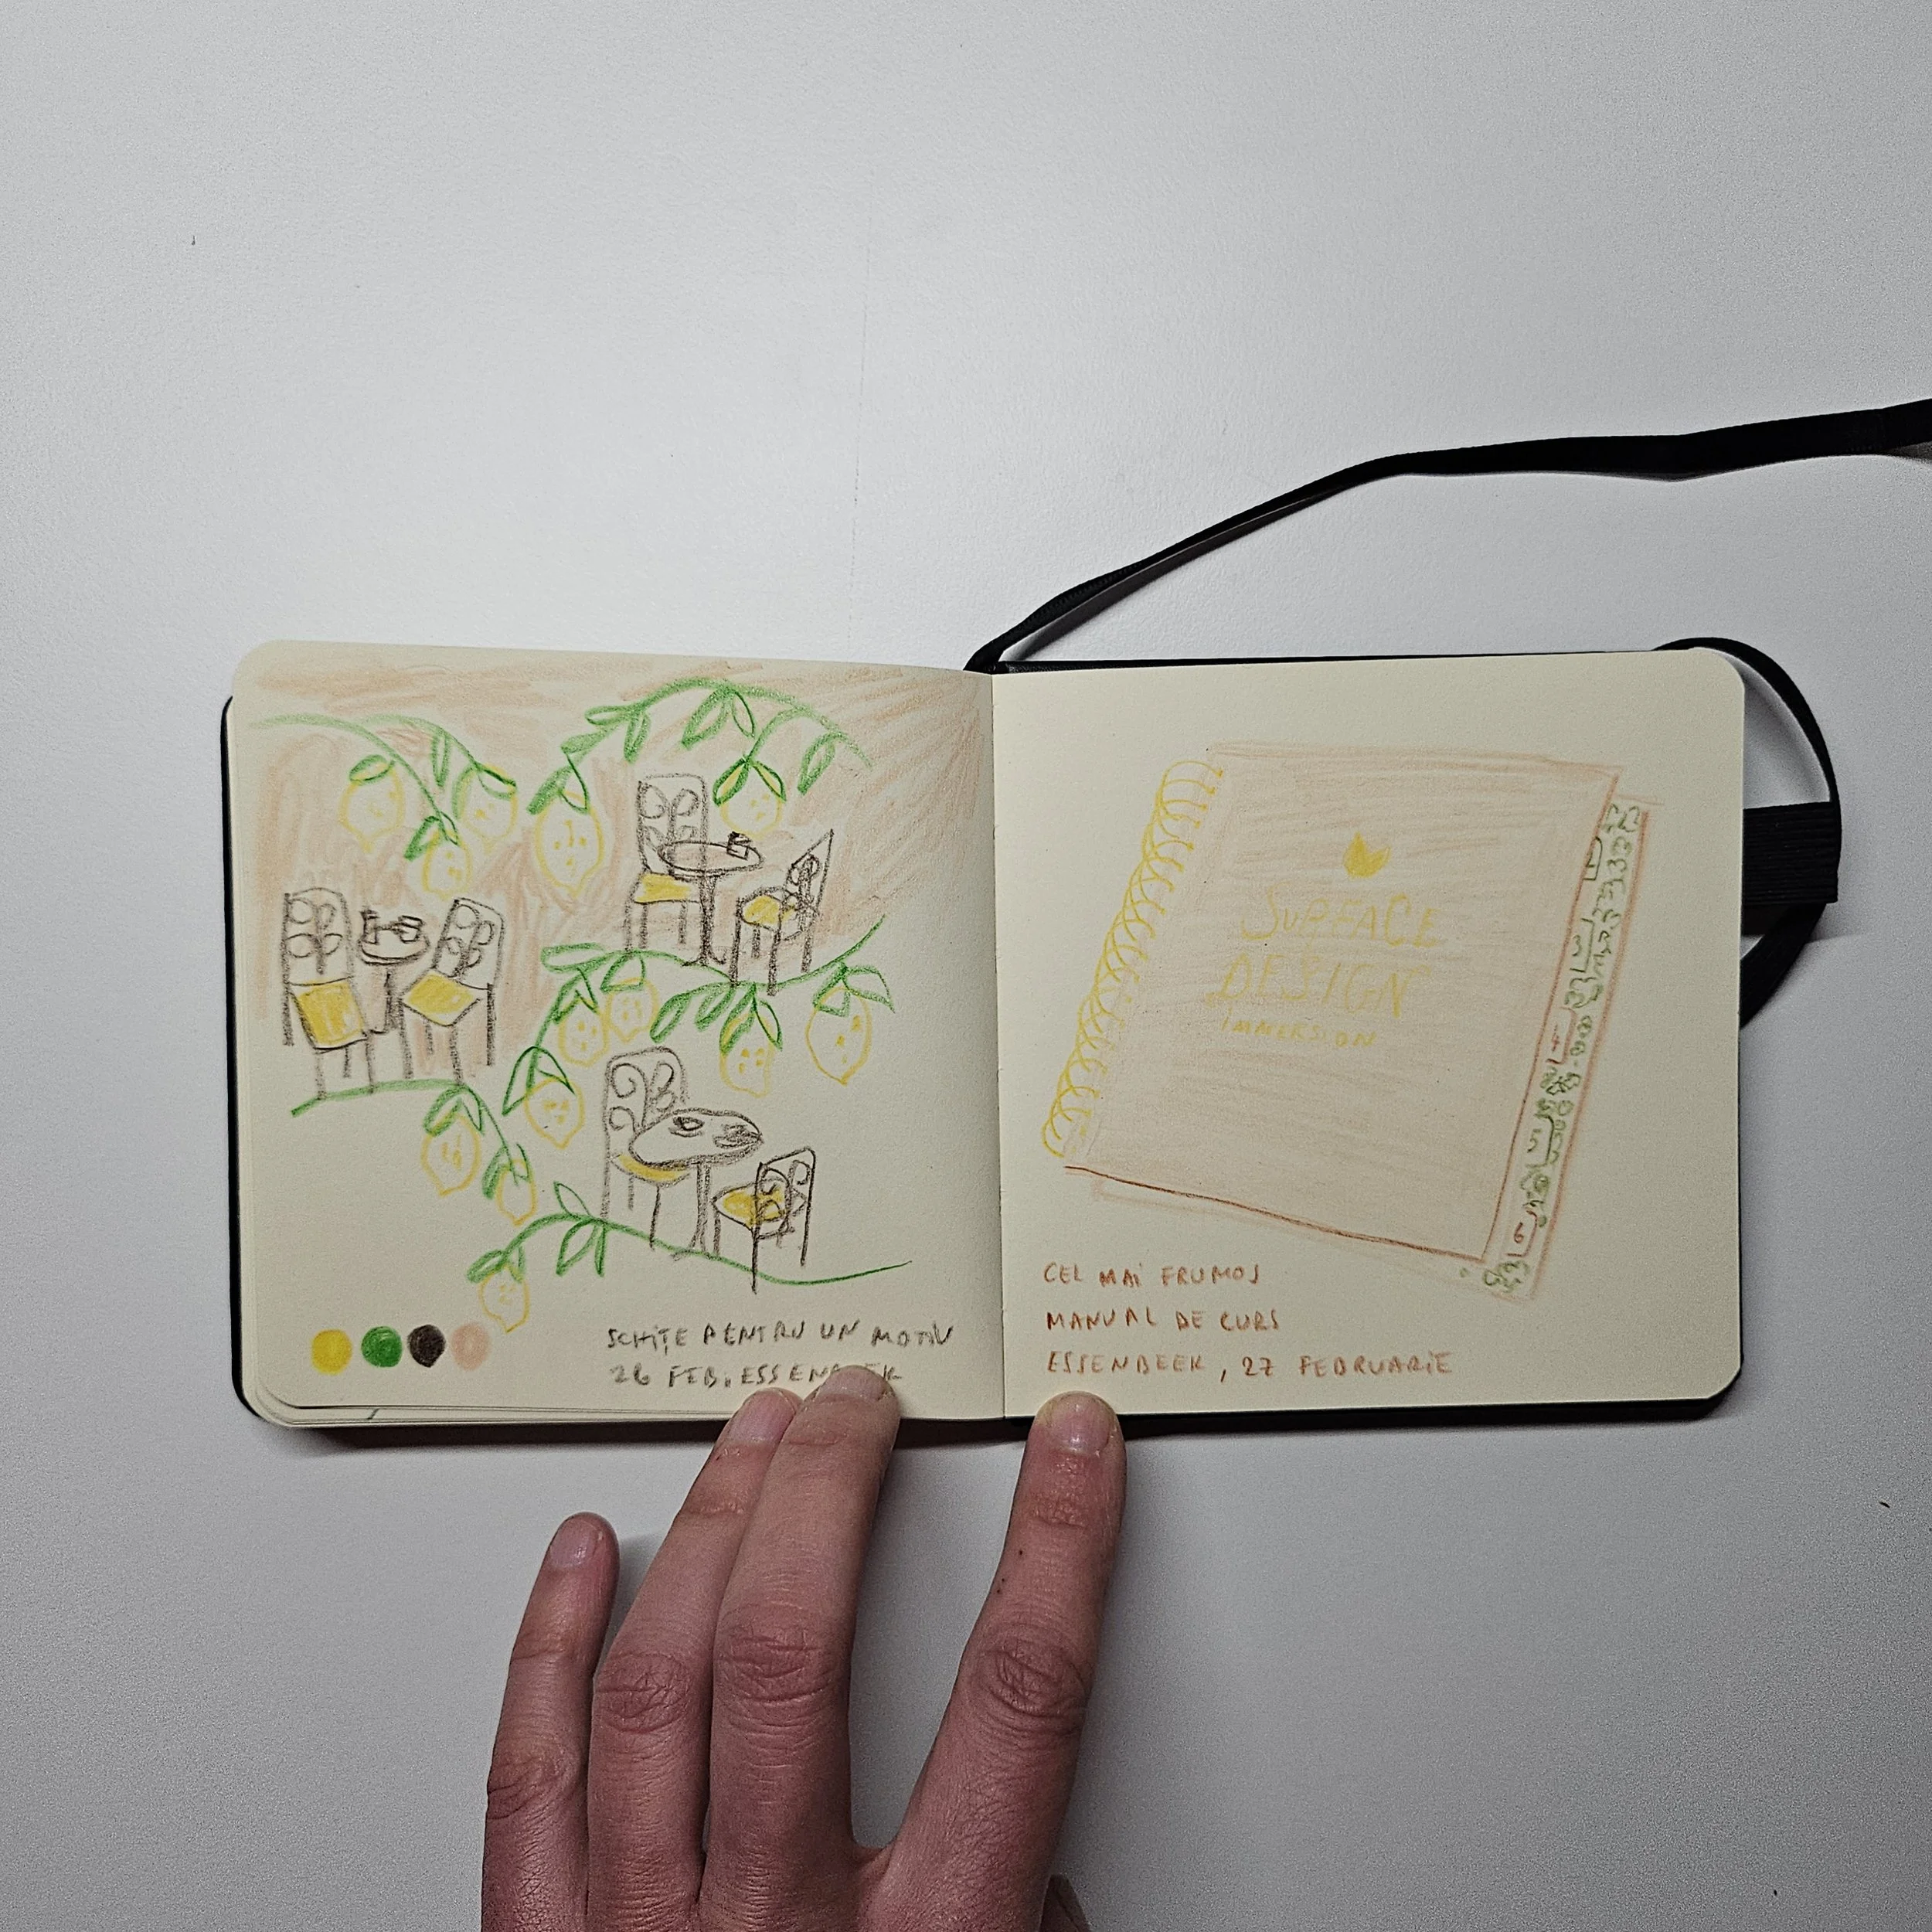 SCHIȚE PENTRU UN MOTIV
26 FEB. ESSENBEEK
SURFACE
DESIGN
IMMERSION
1
3
4
5
6
CEL MAI FRUMOS
MANUAL DE CURS
ESSENBEEK, 27 FEBRUARIE